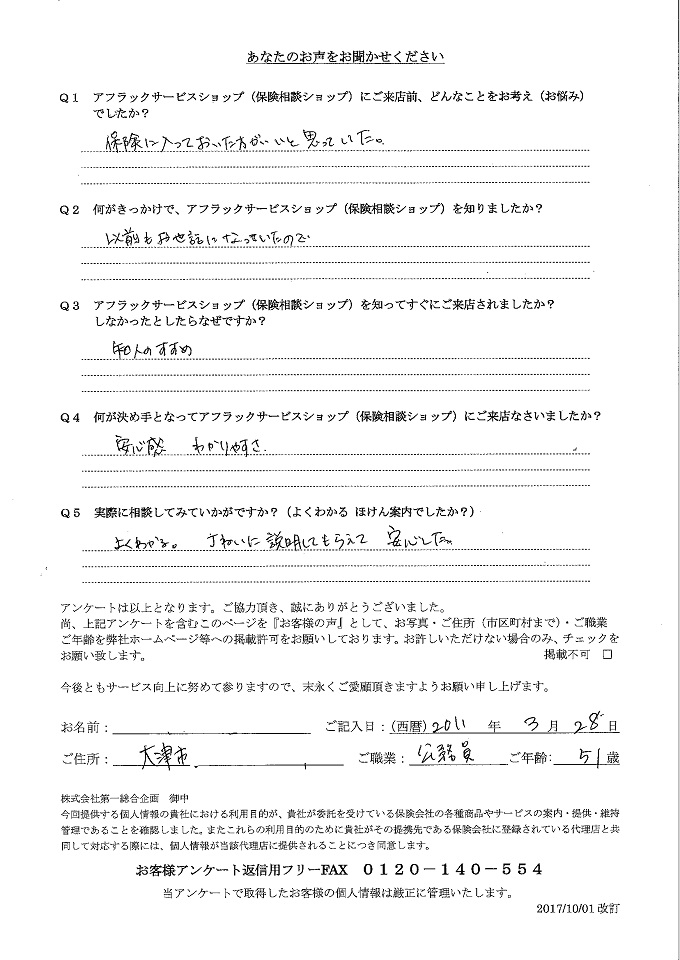 あなたのお声をお聞かせください
Q1 アフラックサービスショップ（保険相談ショップ）にご来店前、どんなことをお考え（お悩み）
でしたか？
保険に入っておいた方がいいと思っていた。
Q2 何がきっかけで、アフラックサービスショップ（保険相談ショップ）を知りましたか？
以前もお世話になっていたので
Q3 アフラックサービスショップ（保険相談ショップ）を知ってすぐにご来店されましたか？
しなかったとしたらなぜですか？
知人のすすめ
Q4 何が決め手となってアフラックサービスショップ（保険相談ショップ）にご来店なさいましたか？
安心感 わかりやすさ.
Q5 実際に相談してみていかがですか？（よくわかる ほけん案内でしたか？）
よくわかる。 ていねいに説明してもらえて 安心した。
アンケートは以上となります。ご協力頂き、誠にありがとうございました。
尚、上記アンケートを含むこのページを『お客様の声』として、お写真・ご住所（市区町村まで）・ご職業
ご年齢を弊社ホームページ等への掲載許可をお願いしております。お許しいただけない場合のみ、チェックを
お願い致します。 掲載不可 □
今後ともサービス向上に努めて参りますので、末永くご愛顧頂きますようお願い申し上げます。
お名前： ご記入日：（西暦）2011 年 3 月 28 日
ご住所： 大津市 ご職業： 公務員 ご年齢： 51 歳
株式会社第一総合企画 御中
今回提供する個人情報の貴社における利用目的が、貴社が委託を受けている保険会社の各種商品やサービスの案内・提供・維持
管理であることを確認しました。またこれらの利用目的のために貴社がその提携先である保険会社に登録されている代理店と共
同して対応する際には、個人情報が当該代理店に提供されることにつき同意します。
お客様アンケート返信用フリーFAX 0120－140－554
当アンケートで取得したお客様の個人情報は厳正に管理いたします。
2017/10/01 改訂